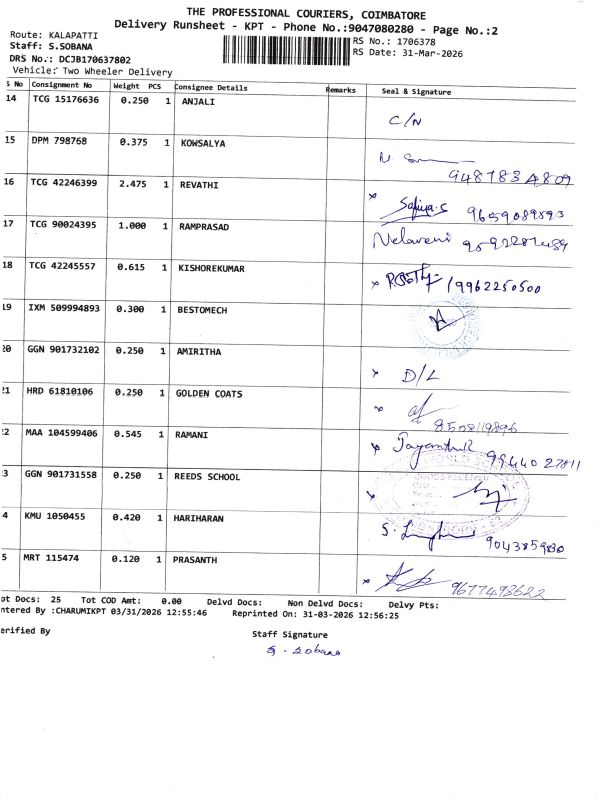 THE PROFESSIONAL COURIERS, COIMBATORE
Delivery Runsheet - KPT - Phone No.:9047080280 - Page No.:2
Route: KALAPATTI
RS No.: 1706378
Staff: S.SOBANA
RS Date: 31-Mar-2026
DRS No.: DCJB170637802
Vehicle: Two Wheeler Delivery
S No Consignment No Weight PCS Consignee Details Remarks Seal & Signature
14 TCG 15176636 0.250 1 ANJALI C/N
15 DPM 798768 0.375 1 KOWSALYA 9487834809
16 TCG 42246399 2.475 1 REVATHI Safiya.S 9659089893
17 TCG 90024395 1.000 1 RAMPRASAD
18 TCG 42245557 0.615 1 KISHOREKUMAR /9962250500
19 IXM 509994893 0.300 1 BESTOMECH
20 GGN 901732102 0.250 1 AMIRITHA D/L
21 HRD 61810106 0.250 1 GOLDEN COATS 8508119896
22 MAA 104599406 0.545 1 RAMANI 99440 27811
3 GGN 901731558 0.250 1 REEDS SCHOOL
4 KMU 1050455 0.420 1 HARIHARAN 9043859830
5 MRT 115474 0.120 1 PRASANTH 9677493622
ot Docs: 25 Tot COD Amt: 0.00 Delvd Docs: Non Delvd Docs: Delvy Pts:
ntered By :CHARUMIKPT 03/31/2026 12:55:46 Reprinted On: 31-03-2026 12:56:25
erified By
Staff Signature
S. Sobana